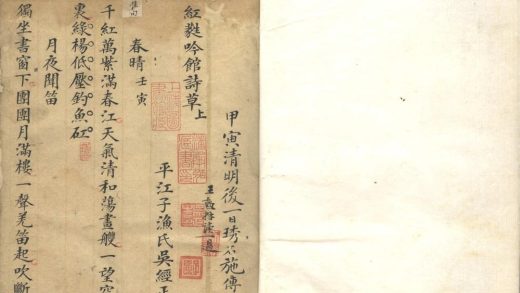 甲寅清明後一日琇尒施傳
王
讀一過
紅蕤吟館詩草上
平江子漁氏吳經
春晴壬寅
千紅萬紫滿春江天氣清和蕩畫艭一望空
裏綠楊低壓釣魚矼
月夜聞笛
獨坐書窗下團團月滿樓一聲羌笛起吹斷